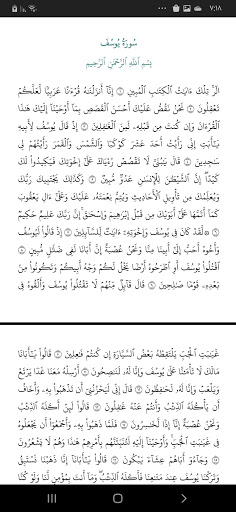 ٧:١٨
سُورَةُ يُوسُفَ
بِسْمِ ٱللَّهِ ٱلرَّحْمَٰنِ ٱلرَّحِيمِ
الٓر تِلْكَ ءَايَٰتُ ٱلْكِتَٰبِ ٱلْمُبِينِ ١ إِنَّآ أَنزَلْنَٰهُ قُرْءَٰنًا عَرَبِيًّا لَّعَلَّكُمْ
تَعْقِلُونَ ٢ نَحْنُ نَقُصُّ عَلَيْكَ أَحْسَنَ ٱلْقَصَصِ بِمَآ أَوْحَيْنَآ إِلَيْكَ هَٰذَا
ٱلْقُرْءَانَ وَإِن كُنتَ مِن قَبْلِهِۦ لَمِنَ ٱلْغَٰفِلِينَ ٣ إِذْ قَالَ يُوسُفُ لِأَبِيهِ
يَٰٓأَبَتِ إِنِّي رَأَيْتُ أَحَدَ عَشَرَ كَوْكَبًا وَٱلشَّمْسَ وَٱلْقَمَرَ رَأَيْتُهُمْ لِي
سَٰجِدِينَ ٤ قَالَ يَٰبُنَيَّ لَا تَقْصُصْ رُءْيَاكَ عَلَىٰٓ إِخْوَتِكَ فَيَكِيدُوا۟ لَكَ
كَيْدًا ۖ إِنَّ ٱلشَّيْطَٰنَ لِلْإِنسَٰنِ عَدُوٌّ مُّبِينٌ ٥ وَكَذَٰلِكَ يَجْتَبِيكَ رَبُّكَ
وَيُعَلِّمُكَ مِن تَأْوِيلِ ٱلْأَحَادِيثِ وَيُتِمُّ نِعْمَتَهُۥ عَلَيْكَ وَعَلَىٰٓ ءَالِ يَعْقُوبَ
كَمَآ أَتَمَّهَا عَلَىٰٓ أَبَوَيْكَ مِن قَبْلُ إِبْرَٰهِيمَ وَإِسْحَٰقَ ۚ إِنَّ رَبَّكَ عَلِيمٌ حَكِيمٌ
٦ ۞ لَّقَدْ كَانَ فِي يُوسُفَ وَإِخْوَتِهِۦٓ ءَايَٰتٌ لِّلسَّآئِلِينَ ٧ إِذْ قَالُوا۟ لَيُوسُفُ
وَأَخُوهُ أَحَبُّ إِلَىٰٓ أَبِينَا مِنَّا وَنَحْنُ عُصْبَةٌ إِنَّ أَبَانَا لَفِي ضَلَٰلٍ مُّبِينٍ ٨
ٱقْتُلُوا۟ يُوسُفَ أَوِ ٱطْرَحُوهُ أَرْضًا يَخْلُ لَكُمْ وَجْهُ أَبِيكُمْ وَتَكُونُوا۟ مِنۢ
بَعْدِهِۦ قَوْمًا صَٰلِحِينَ ٩ قَالَ قَآئِلٌ مِّنْهُمْ لَا تَقْتُلُوا۟ يُوسُفَ وَأَلْقُوهُ فِي
غَيَٰبَتِ ٱلْجُبِّ يَلْتَقِطْهُ بَعْضُ ٱلسَّيَّارَةِ إِن كُنتُمْ فَٰعِلِينَ ١٠ قَالُوا۟ يَٰٓأَبَانَا
مَالَكَ لَا تَأْمَ۫نَّا عَلَىٰ يُوسُفَ وَإِنَّا لَهُۥ لَنَٰصِحُونَ ١١ أَرْسِلْهُ مَعَنَا غَدًا يَرْتَعْ
وَيَلْعَبْ وَإِنَّا لَهُۥ لَحَٰفِظُونَ ١٢ قَالَ إِنِّي لَيَحْزُنُنِيٓ أَن تَذْهَبُوا۟ بِهِۦ وَأَخَافُ
أَن يَأْكُلَهُ ٱلذِّئْبُ وَأَنتُمْ عَنْهُ غَٰفِلُونَ ١٣ قَالُوا۟ لَئِنْ أَكَلَهُ ٱلذِّئْبُ
وَنَحْنُ عُصْبَةٌ إِنَّآ إِذًا لَّخَٰسِرُونَ ١٤ فَلَمَّا ذَهَبُوا۟ بِهِۦ وَأَجْمَعُوٓا۟ أَن يَجْعَلُوهُ
فِي غَيَٰبَتِ ٱلْجُبِّ ۚ وَأَوْحَيْنَآ إِلَيْهِ لَتُنَبِّئَنَّهُم بِأَمْرِهِمْ هَٰذَا وَهُمْ لَا يَشْعُرُونَ
١٥ وَجَآءُوٓ أَبَاهُمْ عِشَآءً يَبْكُونَ ١٦ قَالُوا۟ يَٰٓأَبَانَآ إِنَّا ذَهَبْنَا نَسْتَبِقُ
وَتَرَكْنَا يُوسُفَ عِندَ مَتَٰعِنَا فَأَكَلَهُ ٱلذِّئْبُ ۖ وَمَآ أَنتَ بِمُؤْمِنٍ لَّنَا وَلَوْ كُنَّا